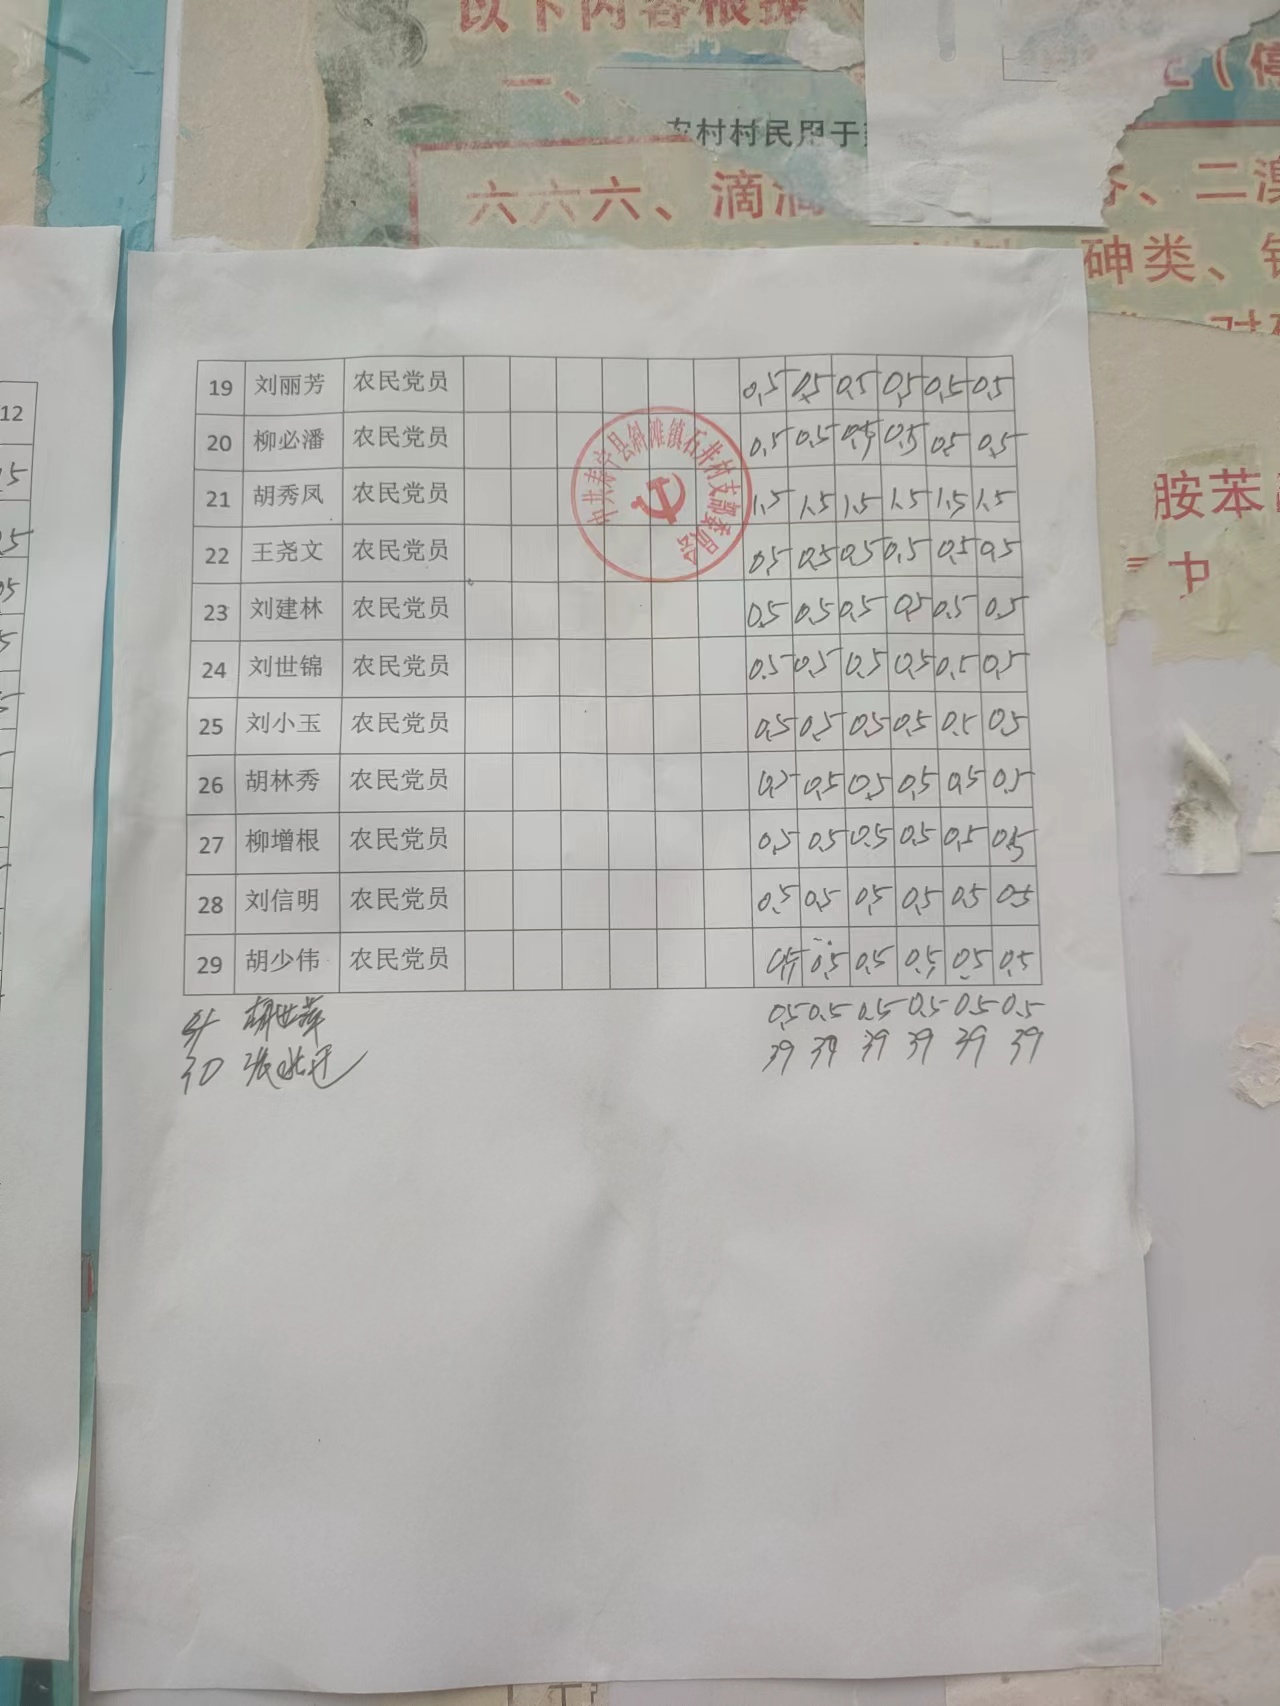 以下内容根据
一、
农村村民用于
六六六、滴滴
、二溴
砷类、
胺苯
12
19 刘丽芳 农民党员 0.5 0.5 0.5 0.5 0.5 0.5
20 柳必潘 农民党员 0.5 0.5 0.5 0.5 0.5 0.5
21 胡秀凤 农民党员 1.5 1.5 1.5 1.5 1.5 1.5
22 王尧文 农民党员 0.5 0.5 0.5 0.5 0.5 0.5
23 刘建林 农民党员 0.5 0.5 0.5 0.5 0.5 0.5
24 刘世锦 农民党员 0.5 0.5 0.5 0.5 0.5 0.5
25 刘小玉 农民党员 0.5 0.5 0.5 0.5 0.5 0.5
26 胡林秀 农民党员 0.5 0.5 0.5 0.5 0.5 0.5
27 柳增根 农民党员 0.5 0.5 0.5 0.5 0.5 0.5
28 刘信明 农民党员 0.5 0.5 0.5 0.5 0.5 0.5
29 胡少伟 农民党员 0.5 0.5 0.5 0.5 0.5 0.5
中共寿宁县斜滩镇石井村支部委员会
胡世萍 0.5 0.5 0.5 0.5 0.5 0.5
30 张 39 39 39 39 39 39